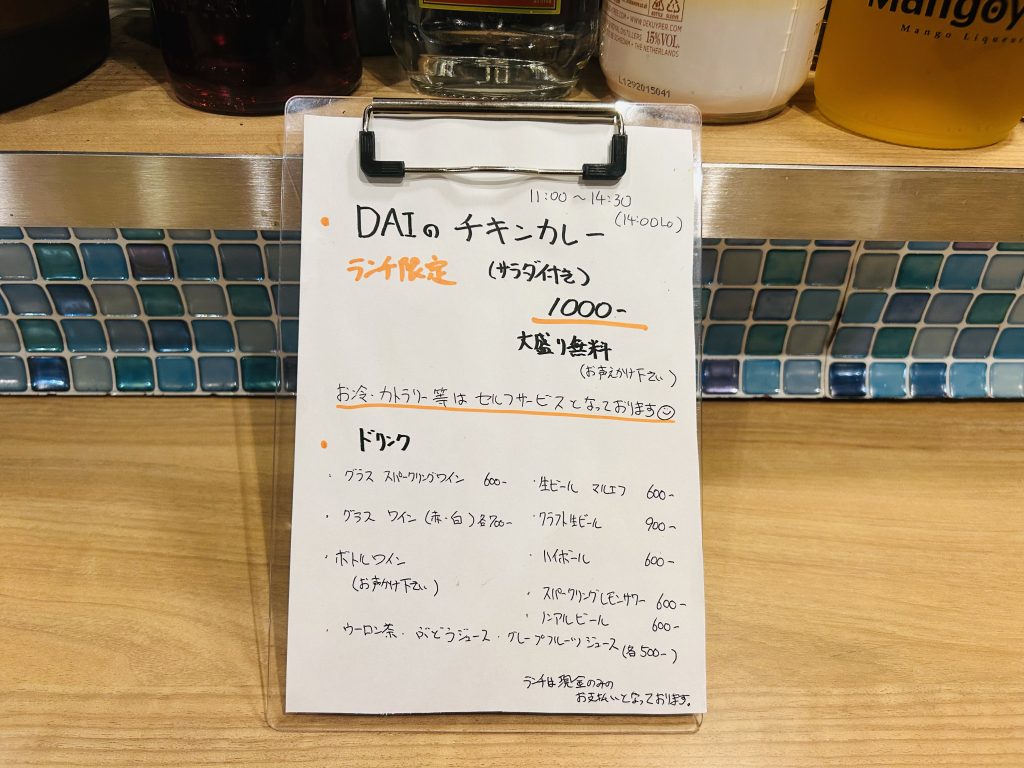 WWW.DEKUYPER.COM
15%VOL.
THE NETHERLANDS
L1292015041
Mangoy
Mango Liqueur
11:00〜14:30
(14:00LO)
・DAIの チキンカレー
ランチ限定 (サラダ付き)
1000-
大盛り無料
(お声えかけ下さい)
お冷・カトラリー等は セルフサービスとなっております☺
・ドリンク
・グラス スパークリングワイン 600-
・グラス ワイン (赤・白) 各700-
・ボトルワイン
(お声かけ下さい)
・生ビール マルエフ 600-
・クラフト生ビール 900-
・ハイボール 600-
・スパークリングレモンサワー 600-
・ノンアルビール 600-
・ウーロン茶・ぶどうジュース・グレープフルーツジュース (各500-)
ランチは現金のみの
お支払いとなっております。